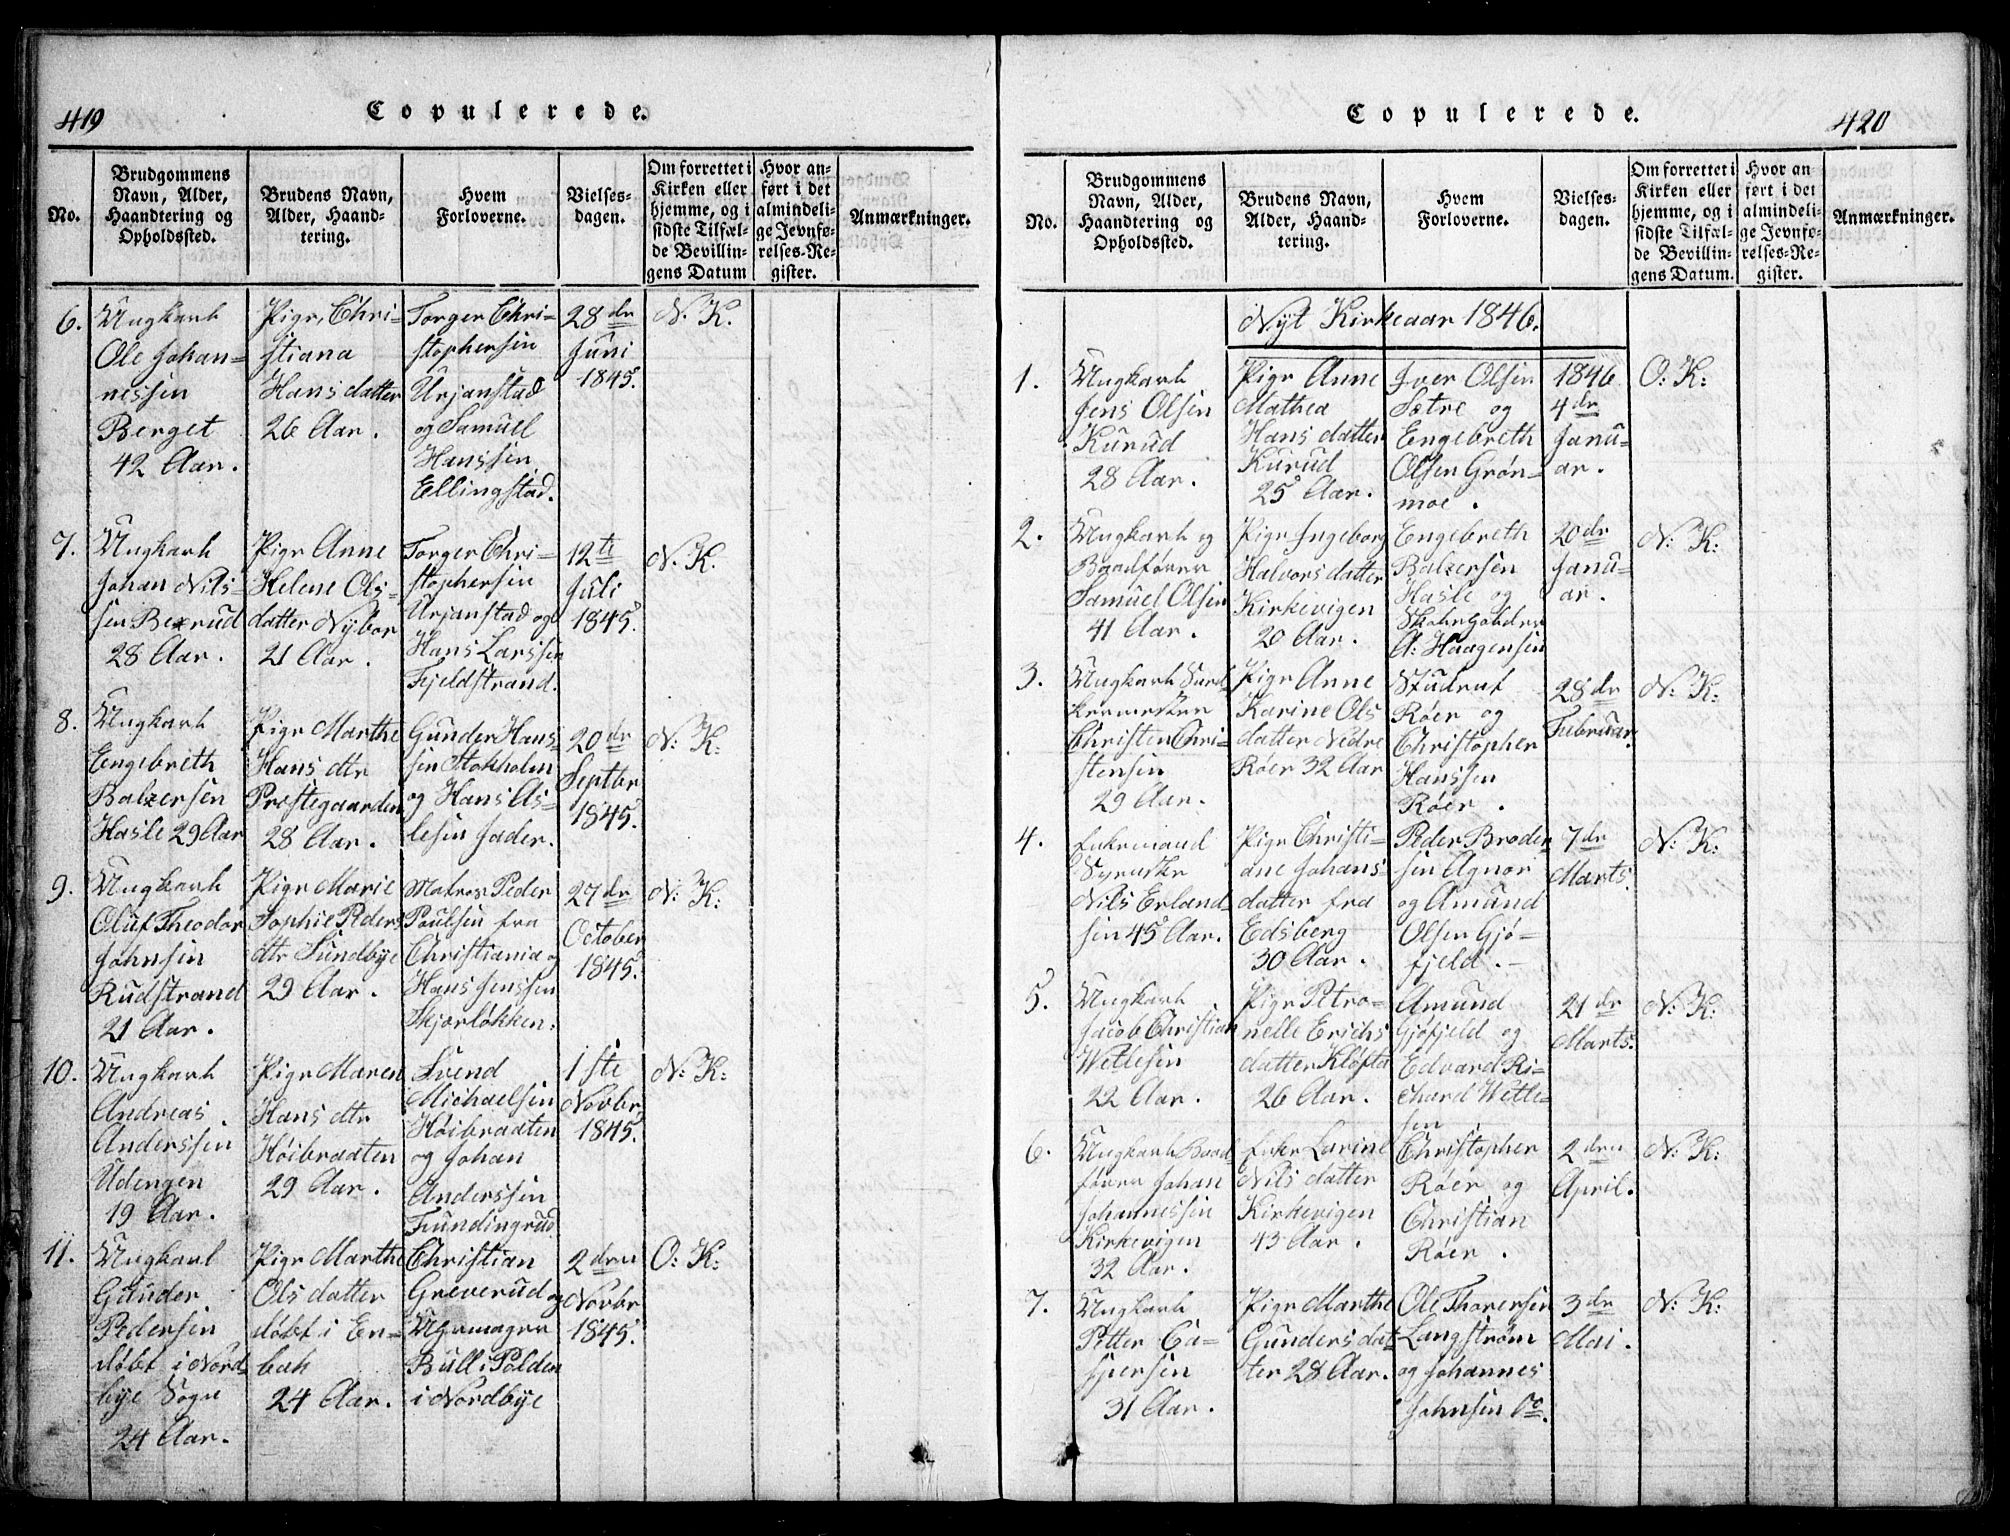 419
Copulerede.
No.
Brudgommens
Navn, Alder,
Haandtering og
Opholdssted.
Brudens Navn,
Alder, Haand-
tering.
Hvem
Forloverne.
Vielses-
dagen.
Om forrettet i
Kirken eller
hjemme, og i
sidste Tilfæl-
de Bevillin-
gens Datum
Hvor an-
ført i det
almindeli-
ge Jevnfø-
relses-Re-
gister.
Anmærkninger.
6.
Ungkarl
Ole Johan-
nessen
Berget
42 Aar.
Pige, Chri-
stiana
Hansdatter
26 Aar.
Torger Chri-
stophersen
Urjanstad
og Samuel
Hanssen
Ellingstad.
28de
Juni
1845.
N. K.
7.
Ungkarl
Johan Nils-
sen Bexrud
28 Aar.
Pige Anne
Helene Ols-
datter Nybor
21 Aar.
Torger Chri-
stophersen
Urjanstad og
Hans Larssen
Fjeldstrand.
12te
Juli
1845.
N. K.
8.
Ungkarl
Engebreth
Balzersen
Hasle 29 Aar
Pige Marthe
Hans dtr
Præstegaarden
28 Aar.
Gunder Hans-
sen Stokholm
og Hans As-
lesen Jader.
20de
Septbr
1845.
N: K:
9.
Ungkarl
Oluf Theodor
Johnsen
Rudstrand
21 Aar.
Pige Marie
Sophie Peders
dtr Sundbye
29 Aar.
Matros Peder
Poulsen fra
Christiania og
Hans Jenssen
Skjærløkken:
27de
October
1845.
N: K:
10.
Ungkarl
Andreas
Anderssen
Udengen
19 Aar.
Pige Maren
Hans dtr
Høibraaten
29 Aar.
Svend
Michaelsen
Høibraaten
og Johan
Anderssen
Fundingrud
1ste
Novbr.
1845.
N: K:
11.
Ungkarl
Gunder
Pedersen
døbt i Nord-
bye Sogn
24 Aar.
Pige Marthe
Olsdatter
døbt i En-
bak
24 Aar.
Christian
Greverud og
Uhrmager
Bull i Pølden
i Nordbye
2den
Novbr
1845.
O: K:
Copulerede.
420
No.
Brudgommens
Navn, Alder,
Haandtering og
Opholdssted.
Brudens Navn,
Alder, Haand-
tering.
Hvem
Forloverne.
Vielses-
dagen.
Om forrettet i
Kirken eller
hjemme, og i
sidste Tilfæl-
de Bevillin-
gens Datum.
Hvor an
ført i det
almindeli-
ge Jevnfø-
relses-Re-
gister.
Anmærkninger.
Nyt Kirkeaar 1846.
1.
Ungkarl
Jens Olsen
Kurud
28 Aar.
Pige Anne
Mathea
Hans datter
Kurud
25 Aar.
Iver Olsen
Sætre og
Engebreth
Olsen Grøn-
moe.
1846
4de
Janu-
ar.
O: K:
2.
Ungkarl og
Baadfører
Samuel Olsen
41 Aar.
Pige Ingeborg
Halvorsdatter
Kirkevigen
20 Aar.
Engebreth
Balzersen
Hasle og
Skoleholder
A: Haagensen
20de
Janu-
ar.
N: K:
3.
Ungkarl
Christen Chri-
stensen
29 Aar.
Pige Anne
Karine Ols
datter Nedre
Røer 32 Aar
Student
Røer og
Christopher
Hanssen
Røer.
28de
Februar.
N: K:
4.
Enkemand
Nils Erland-
sen 45 Aar.
Pige Christi-
ane Johans
datter fra
Edsberg
30 Aar.
Peder Broder
sen Agnor
og Amund
Olsen Gjø-
fjeld.
7de
Marts.
N: K:
5.
Ungkarl
Jacob Christian
Wetlesen
22 Aar.
Pige Petro-
nelle Erichs
datter Kløfta
26 Aar.
Amund
Gjøfjeld og
Edvard Ri-
chard Wetle-
sen
21de
Marts.
N: K:
6.
Ungkarl Baad-
fører Johan
Johannessen
Kirkevigen
32 Aar.
Enke Larine
Nils datter
Kirkevigen
43 Aar.
Christopher
Røer og
Christian
Røer.
2den
April.
N: K:
7.
Ungkarl
Petter Ca-
spersen
31 Aar.
Pige Marthe
Gundersdat-
ter 28 Aar.
Ole Thoresen
Langstrøm
og Johannes
Johnsen Do.
3de
Mai.
N: K: